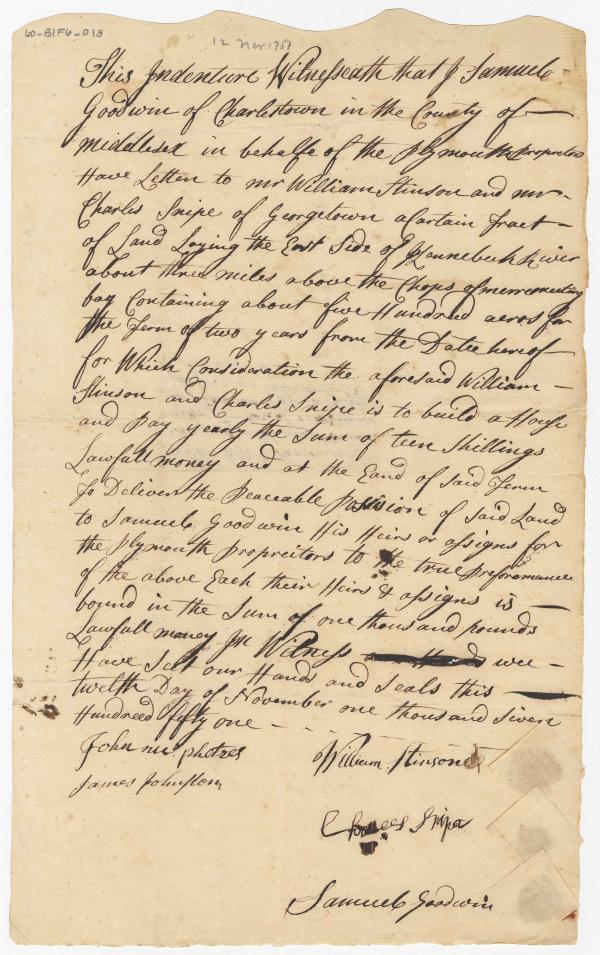 60-B1F6-018
12 Nov 1751
This Indenture Witnesseath that I Samuel
Goodwin of Charlestown in the County of
Middlesex in behalfe of the Plymouth Proprietors
Have Letten to mr William Stinson and mr
Charles Snipe of Georgetown a Cartain Tract
of Land Laying the East Side of Kennebeck River
about three miles above the Chops of merremeeting
bay Containing about five Hundred acros for
the Term of two years from the Datee hereof
for Which Consideration the aforesaid William
Stinson and Charles Snipe is to build a House
and Pay yearly the Sum of teen Shillings
Lawfull money and at the Eand of said Term
To Deliver the Peaceable Possision of said Land
to Samuel Goodwin His Heirs or assigns for
the Plymouth Propreitors to the true Preforemance
of the above Each their Heirs & assigns is
bound in the Sum of one thousand pounds
Lawfull money In Witness wee
Have Sett our Hands and Seals this
twelth Day of November one thousand Seven
Hundreed fifty one
John mc phetres
James Johnston
William Stinson
Charles Snipe
Samuel Goodwin